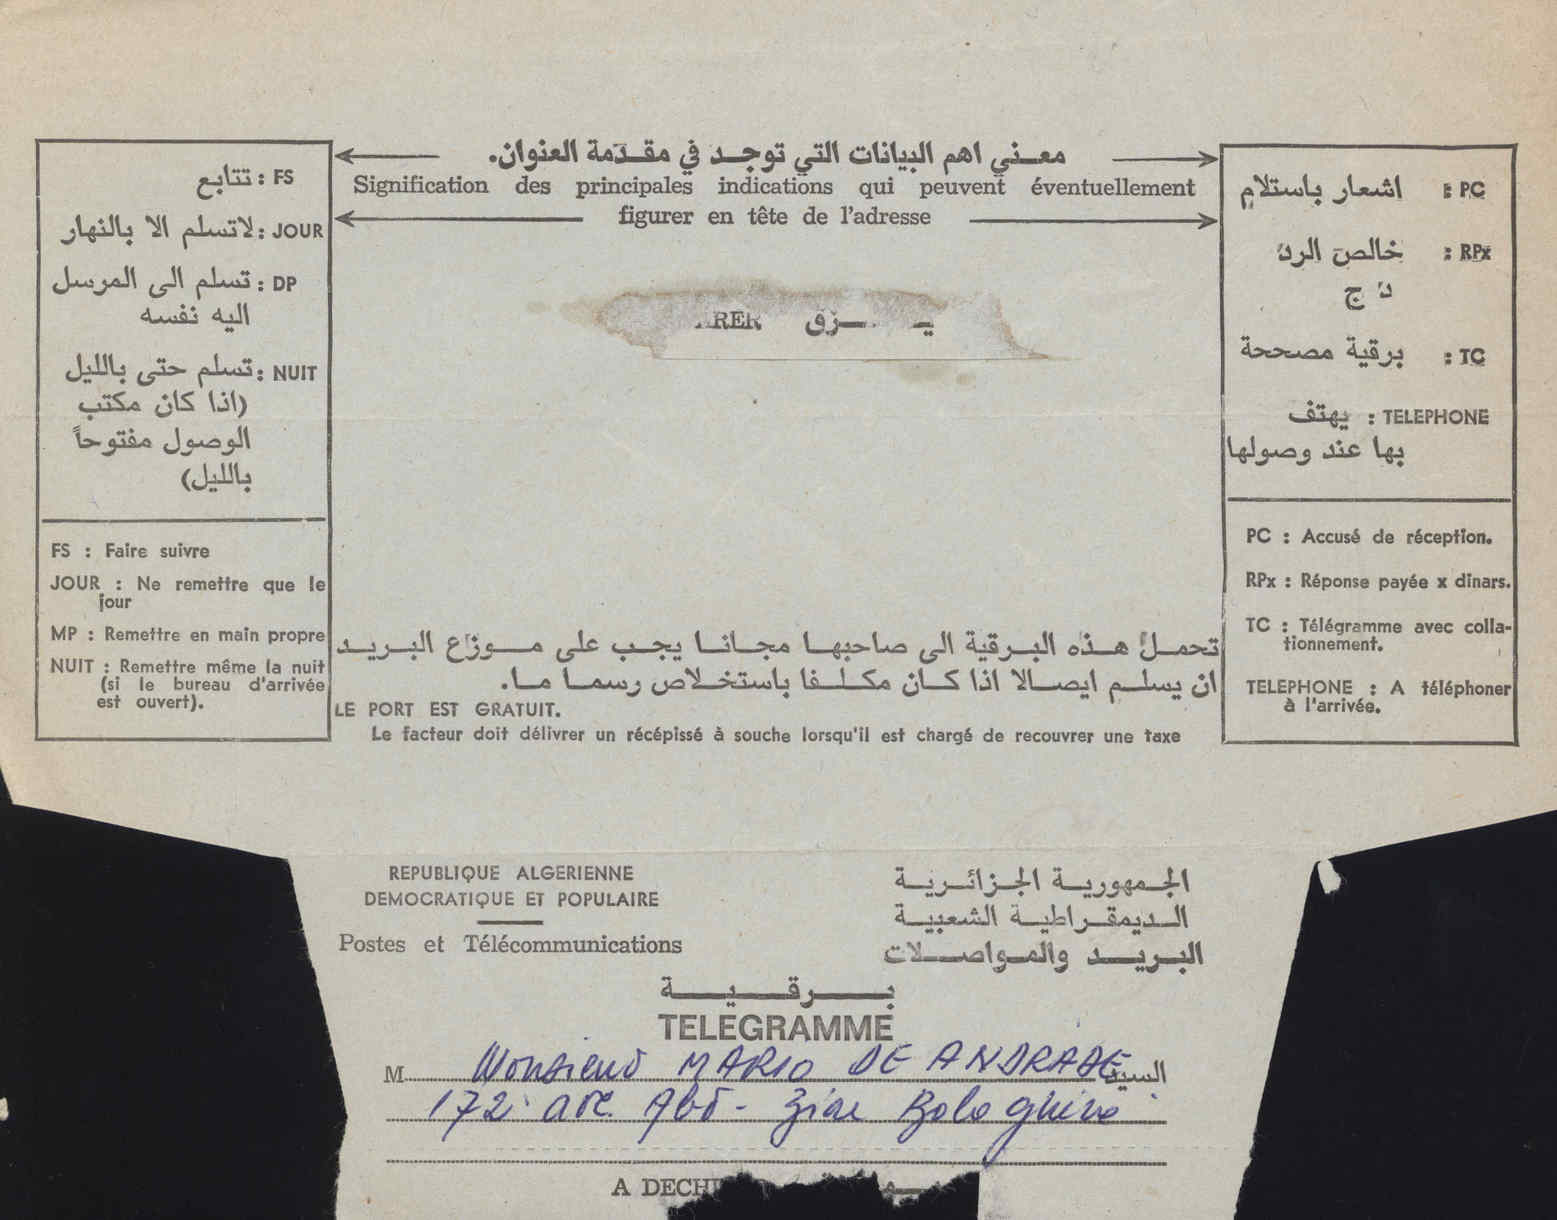 معـنـي اهم البيانات التي توجـد في مقـدّمة العنوان.
Signification des principales indications qui peuvent éventuellement
figurer en tête de l'adresse
FS : تتابع
JOUR : لاتسلم الا بالنهار
DP : تسلم الى المرسل
اليه نفسه
NUIT : تسلم حتى بالليل
(اذا كان مكتب
الوصول مفتوحاً
بالليل)
FS : Faire suivre
JOUR : Ne remettre que le
jour
MP : Remettre en main propre
NUIT : Remettre même la nuit
(si le bureau d'arrivée
est ouvert).
PC : اشعار باستلام
RPx : خالص الرد
د ج
TC : برقية مصححة
TELEPHONE : يهتف
بها عند وصولها
PC : Accusé de réception.
RPx : Réponse payée x dinars.
TC : Télégramme avec colla-
tionnement.
TELEPHONE : A téléphoner
à l'arrivée.
تحمل هذه البرقية الى صاحبها مجانا يجب على موزاع البريد
ان يسلم ايصالا اذا كان مكلفا باستخلاص رسما ما.
LE PORT EST GRATUIT.
Le facteur doit délivrer un récépissé à souche lorsqu'il est chargé de recouvrer une taxe
REPUBLIQUE ALGERIENNE
DEMOCRATIQUE ET POPULAIRE
Postes et Télécommunications
الجمهورية الجزائرية
الديمقراطية الشعبية
البريد والمواصلات
برقية
TELEGRAMME
M Monsieur MARIO DE ANDRADE السيد
172 ave Abd- Ziar Bologhine
A DECH